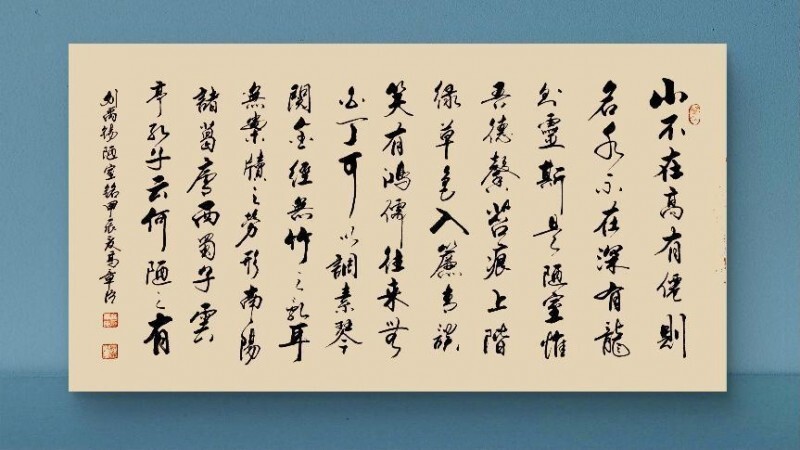 山不在高有僊則
名水不在深有龍
則靈斯是陋室惟
吾德馨苔痕上階
綠草色入簾青談
笑有鴻儒往来無
白丁可以調素琴
閱金經無竹之亂耳
無案牘之勞形南陽
諸葛廬西蜀子雲
亭孔子云何陋之有
劉禹錫陋室銘甲辰夏